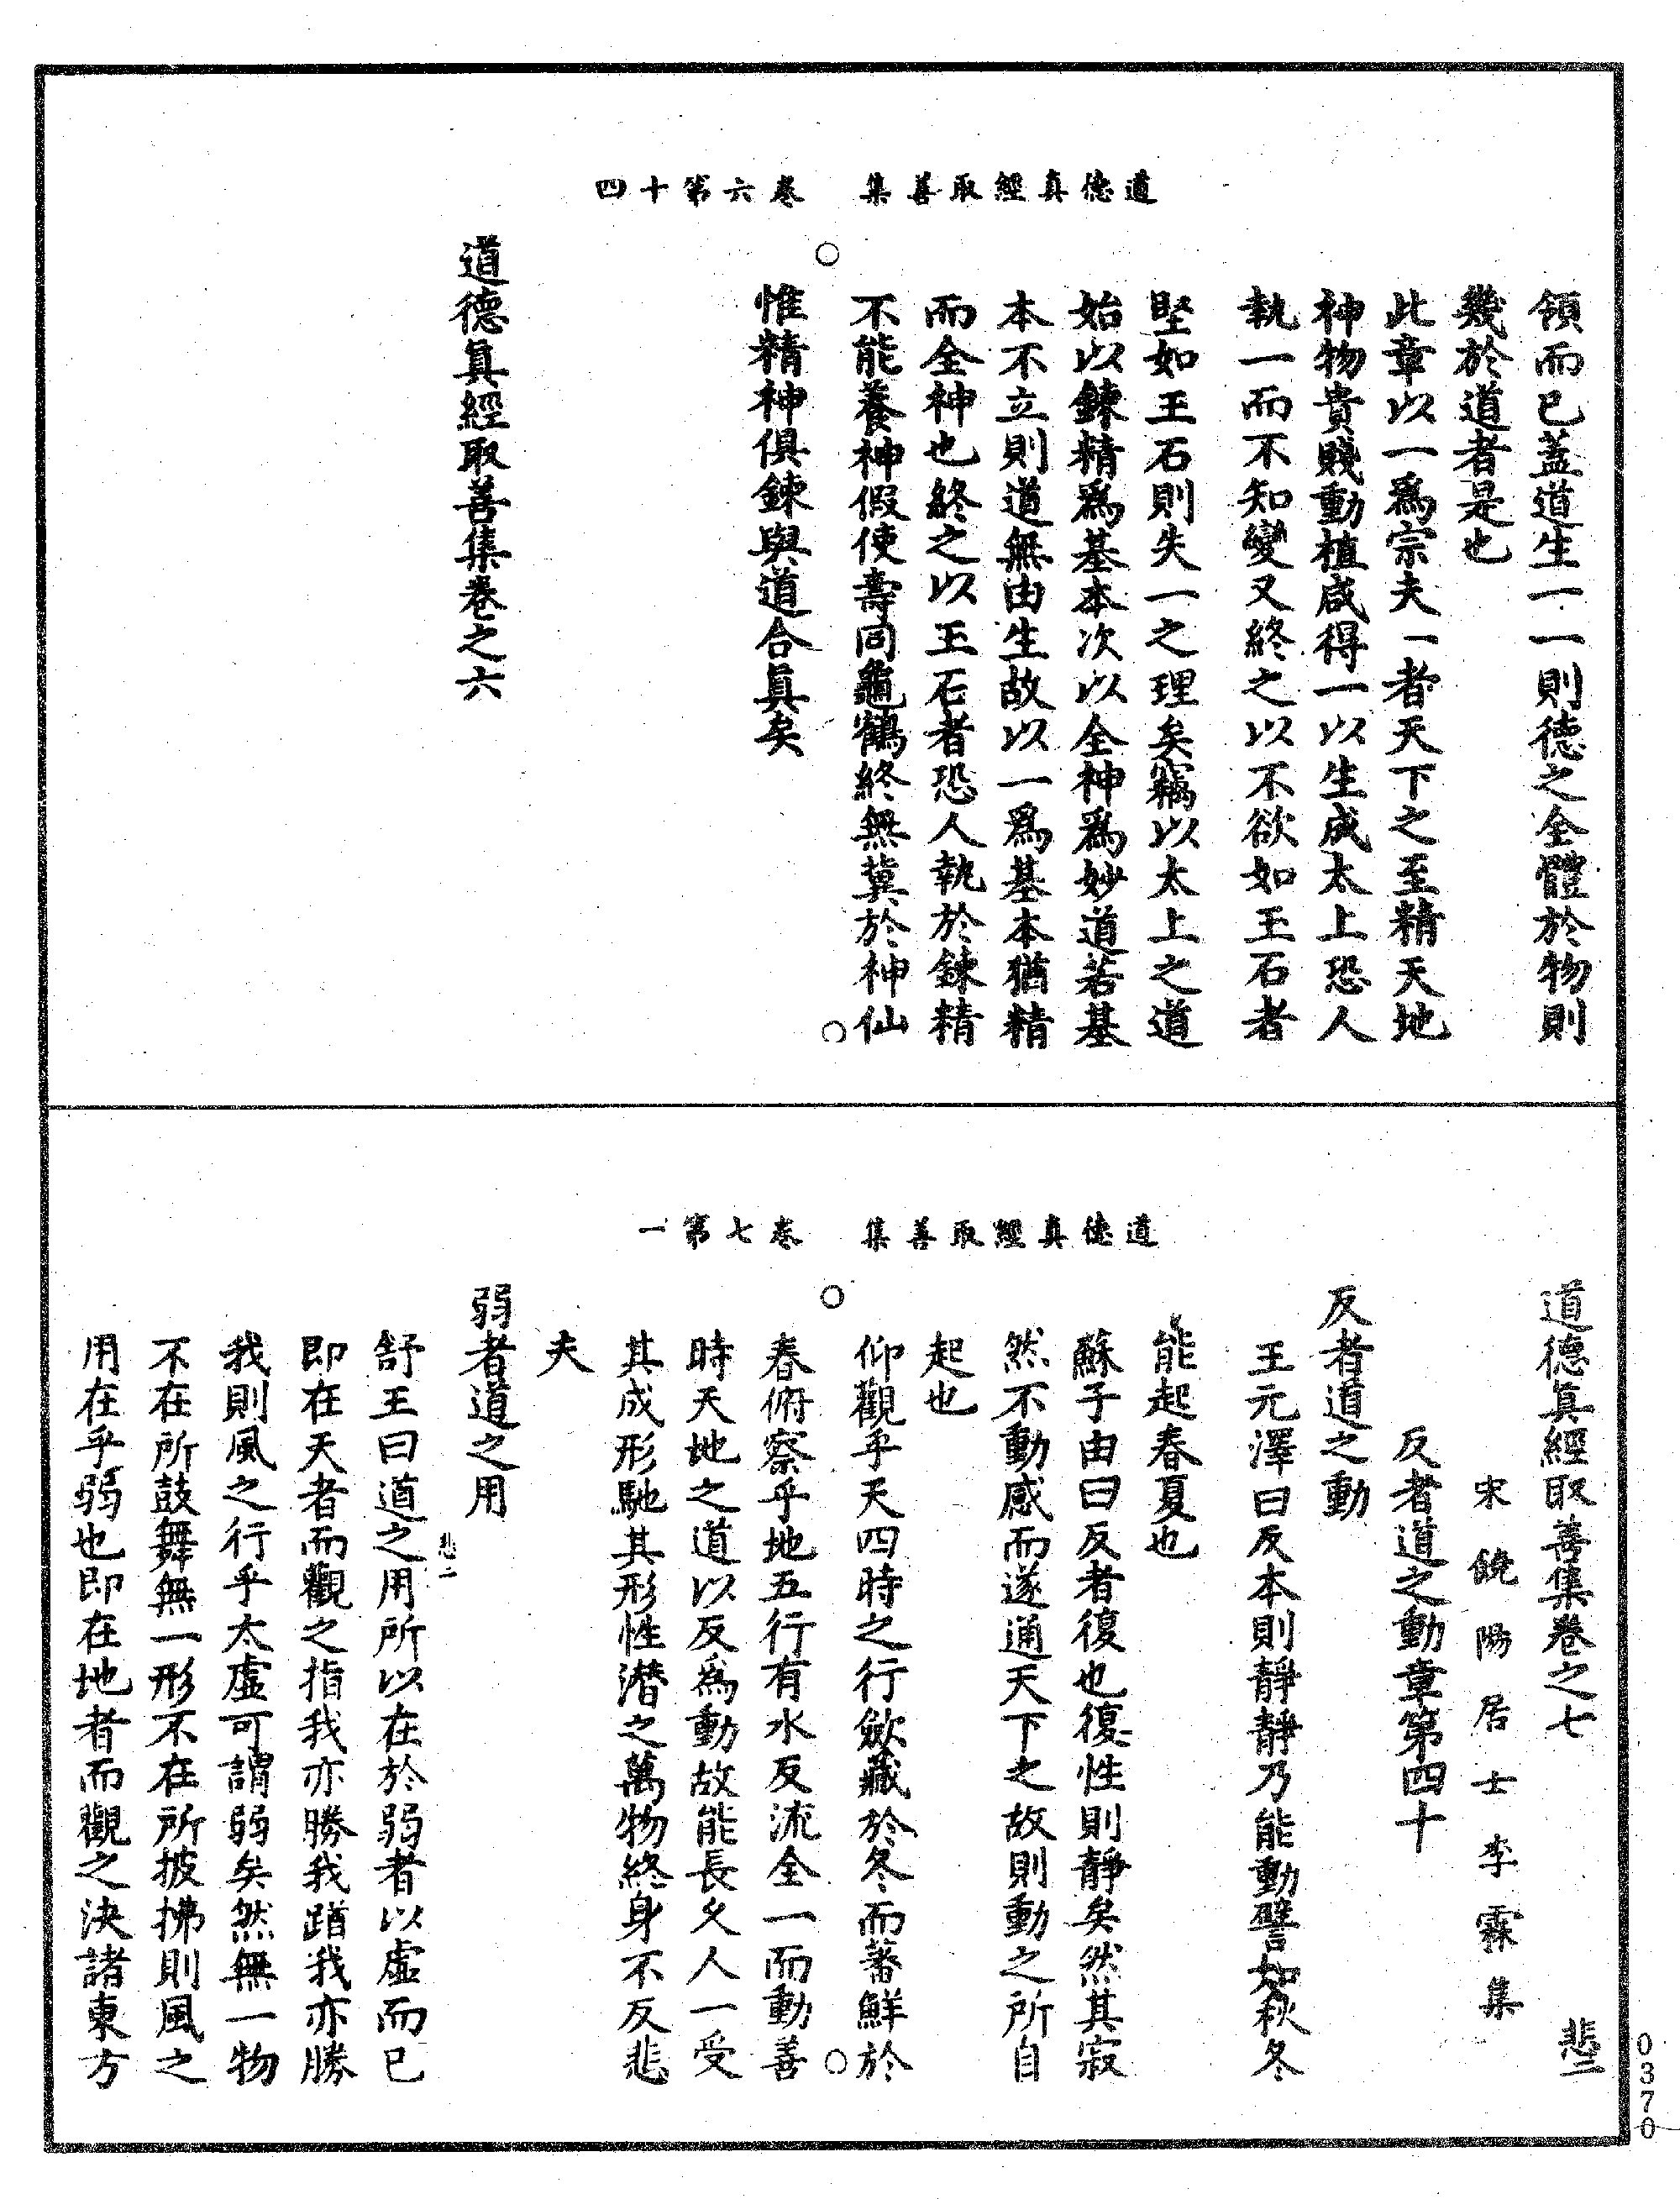 道德真經取善集　卷六第十四
領而已蓋道生一一則德之全體於物則
幾於道者是也
此章以一爲宗夫一者天下之至精天地
神物貴賤動植咸得一以生成太上恐人
執一而不知變又終之以不欲如玉石者
堅如玉石則失一之理矣竊以太上之道
始以鍊精爲基本次以全神爲妙道若基
本不立則道無由生故以一爲基本猶精
而全神也終之以玉石者恐人執於鍊精
不能養神假使壽同龜鶴終無冀於神仙
惟精神俱鍊與道合真矣
道德眞經取善集卷之六
道德真經取善集　卷七第一
道德眞經取善集卷之七　悲二
宋饒陽居士李霖集
反者道之動章第四十
反者道之動
王元澤曰反本則靜靜乃能動譬如秋冬
能起春夏也
蘇子由曰反者復也復性則靜矣然其寂
然不動感而遂通天下之故則動之所自
起也
仰觀乎天四時之行斂藏於冬而蕃鮮於
春俯察乎地五行有水反流全一而動善
時天地之道以反爲動故能長久人一受
其成形馳其形性潛之萬物終身不反悲
夫
弱者道之用
悲二
舒王曰道之用所以在於弱者以虛而已
即在天者而觀之指我亦勝我蹈我亦勝
我則風之行乎太虛可謂弱矣然無一物
不在所鼓舞無一形不在所披拂則風之
用在乎弱也即在地者而觀之決諸東方
0370